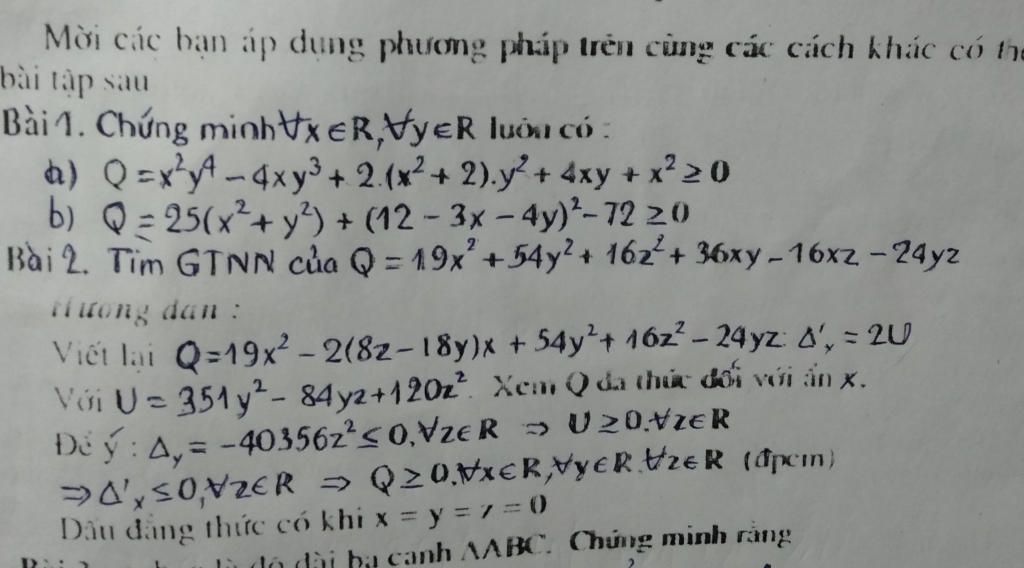 Mời các bạn áp dụng phương pháp trên cùng các cách khác có
bài tập sau
Bài 1. Chứng minh ∀x∈R, ∀y∈R luôn có :
a) Q = x²y⁴ - 4xy³ + 2.(x² + 2).y² + 4xy + x² ≥ 0
b) Q = 25(x² + y²) + (12 - 3x - 4y)² - 72 ≥ 0
Bài 2. Tìm GTNN của Q = 19x² + 54y² + 16z² + 36xy - 16xz - 24yz
Hướng dẫn :
Viết lại Q = 19x² - 2(8z - 18y)x + 54y² + 16z² - 24yz: Δ'ₓ = 2U
Với U = 351y² - 84yz + 120z². Xem Q đa thức đối với ẩn x.
Để ý : Δy = -40356z² ≤ 0, ∀z∈R ⇒ U ≥ 0. ∀z∈R
⇒ Δ'ₓ ≤ 0, ∀z∈R ⇒ Q ≥ 0. ∀x∈R, ∀y∈R. ∀z∈R (đpcm)
Dấu đẳng thức có khi x = y = z = 0
độ dài ba cạnh ΔABC. Chứng minh rằng